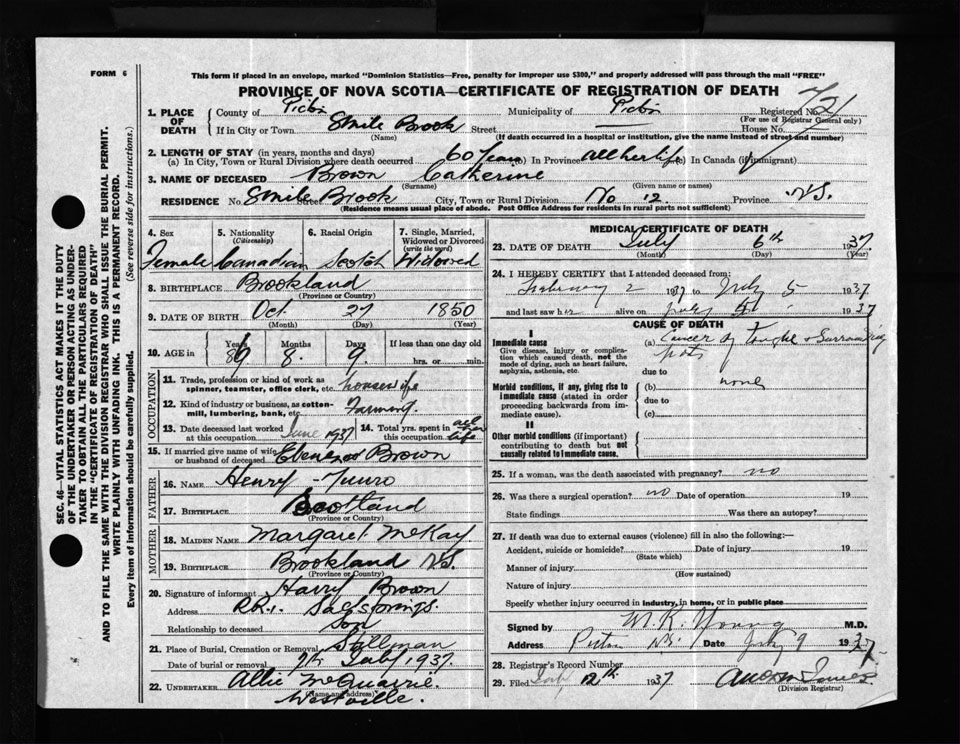 FORM 6
This form if placed in an envelope, marked "Dominion Statistics—Free, penalty for improper use $300," and properly addressed will pass through the mail "FREE"
PROVINCE OF NOVA SCOTIA—CERTIFICATE OF REGISTRATION OF DEATH
1. PLACE OF DEATH
County of Pictou Municipality of Pictou Registered No. 721
(For use of Registrar General only)
If in City or Town 8 Mile Brook Street — House No.
(Name) (If death occurred in a hospital or institution, give the name instead of street and number)
2. LENGTH OF STAY (in years, months and days)
(a) In City, Town or Rural Division where death occurred 60 Years (b) In Province all her life (c) In Canada (if immigrant)
3. NAME OF DECEASED Brown Catherine
(Surname) (Given name or names)
RESIDENCE No. 8 Mile Brook Street City, Town or Rural Division No 12 Province N.S.
(Residence means usual place of abode. Post Office Address for residents in rural parts not sufficient)
4. Sex 5. Nationality (Citizenship) 6. Racial Origin 7. Single, Married, Widowed or Divorced (write the word)
Female Canadian Scotch Widowed
8. BIRTHPLACE Brookland
(Province or Country)
9. DATE OF BIRTH Oct. 27 1850
(Month) (Day) (Year)
10. AGE in Years Months Days If less than one day old
86 8. 9. hrs. or min.
OCCUPATION
11. Trade, profession or kind of work as spinner, teamster, office clerk, etc. housewife
12. Kind of industry or business, as cotton-mill, lumbering, bank, etc. Farming.
13. Date deceased last worked at this occupation June 1937 14. Total yrs. spent in this occupation all her life
15. If married give name of wife or husband of deceased Ebenezer Brown
FATHER
16. NAME Henry Munro
17. BIRTHPLACE Scotland
(Province or Country)
MOTHER
18. MAIDEN NAME Margaret McKay
19. BIRTHPLACE Brookland N.S.
(Province or Country)
20. Signature of informant Harry Brown
Address R.R.1. Saltsprings.
Relationship to deceased Son
21. Place of Burial, Cremation or Removal Stillman
Date of burial or removal 7th July 1937.
22. UNDERTAKER Allie McQuarrie.
(Name and address)
Westville.
MEDICAL CERTIFICATE OF DEATH
23. DATE OF DEATH July 6th 1937
(Month) (Day) (Year)
24. I HEREBY CERTIFY that I attended deceased from:
February 2 1937 to July 5 1937
and last saw her alive on July 5 1937
CAUSE OF DEATH
I
Immediate cause (a) Cancer of Tongue & Surrounding
Give disease, injury or complication which caused death, not the mode of dying, such as heart failure, asphyxia, asthenia, etc.
parts
due to
Morbid conditions, if any, giving rise to immediate cause (stated in order proceeding backwards from immediate cause). (b) none
due to
(c)
II
Other morbid conditions (if important) contributing to death but not causally related to immediate cause.
25. If a woman, was the death associated with pregnancy? no
26. Was there a surgical operation? no Date of operation 19
State findings Was there an autopsy?
27. If death was due to external causes (violence) fill in also the following:—
Accident, suicide or homicide? Date of injury 19
(State which)
Manner of injury
(How sustained)
Nature of injury
Specify whether injury occurred in industry, in home, or in public place
Signed by M. R. Young M.D.
Address Pictou N.S. Date July 9 1937
28. Registrar's Record Number
29. Filed July 12th 1937
(Division Registrar)
SEC. 46—VITAL STATISTICS ACT MAKES IT THE DUTY OF THE UNDERTAKER OR PERSON ACTING AS UNDERTAKER TO OBTAIN ALL THE PARTICULARS REQUIRED IN THE "CERTIFICATE OF REGISTRATION OF DEATH" AND TO FILE THE SAME WITH THE DIVISION REGISTRAR WHO SHALL ISSUE THE BURIAL PERMIT.
WRITE PLAINLY WITH UNFADING INK. THIS IS A PERMANENT RECORD.
Every item of information should be carefully supplied. (See reverse side for instructions.)